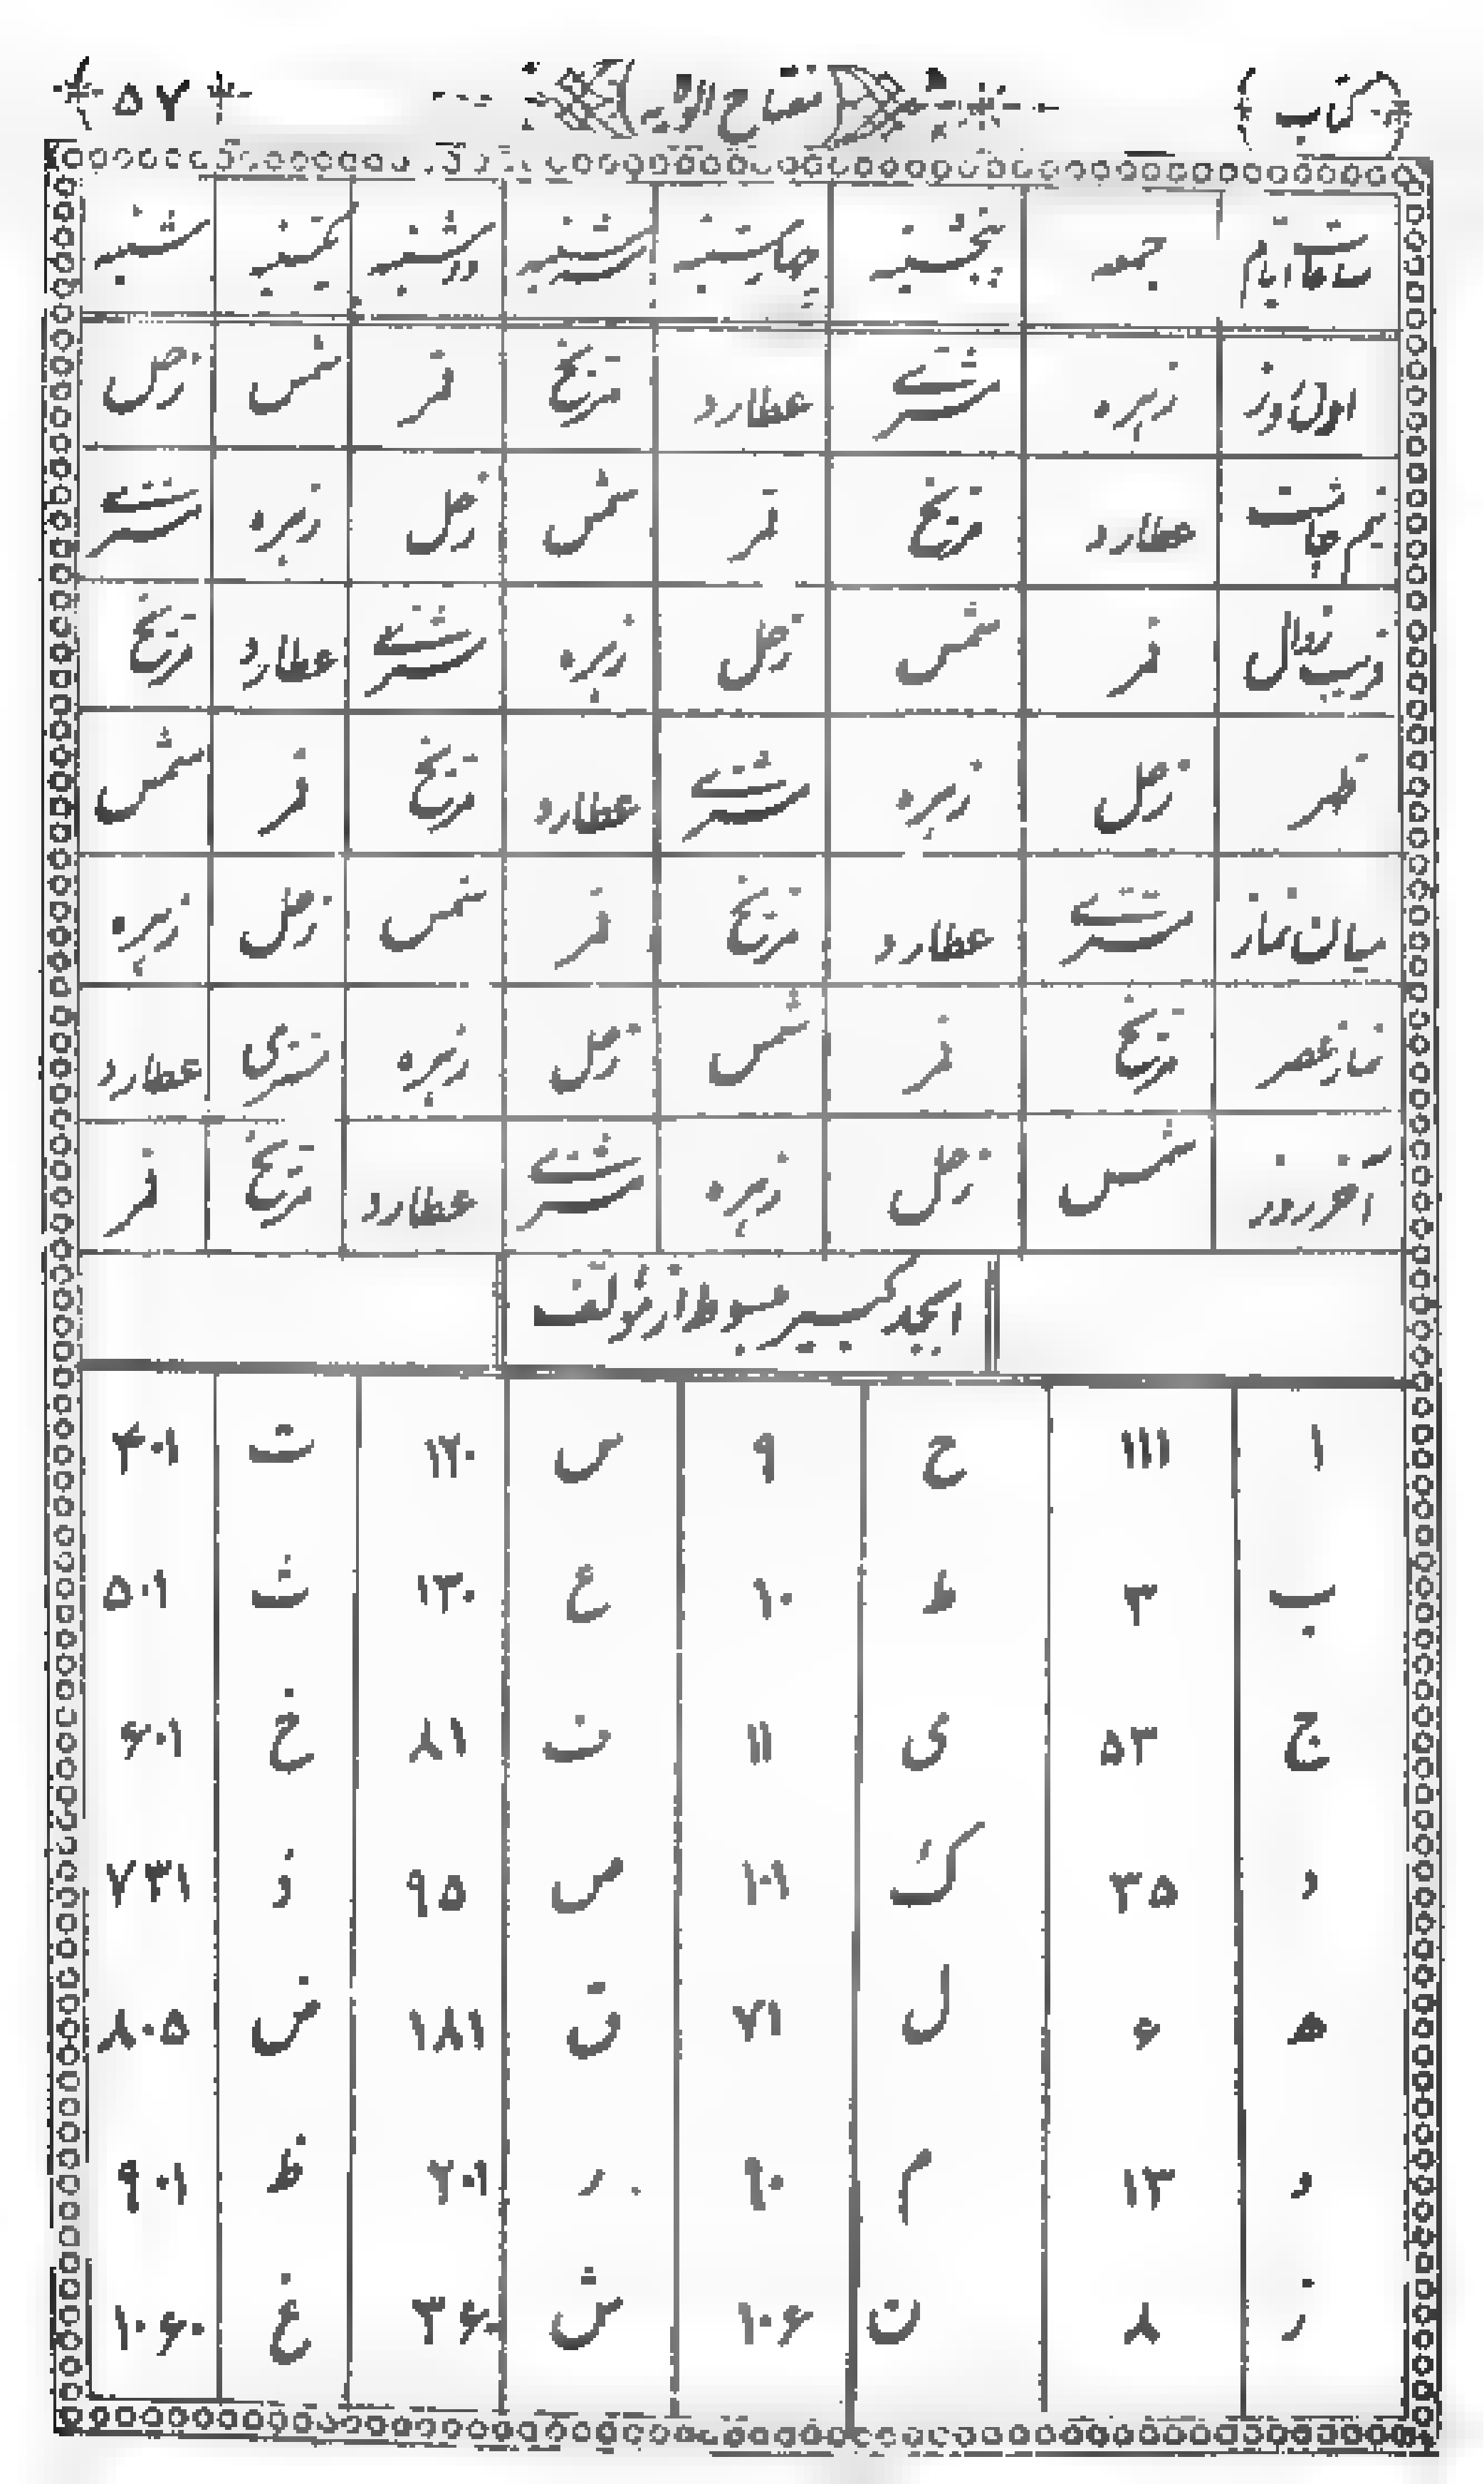 کتاب مفتاح الولایه ۵۷
ساعات ایام جمعه پنجشنبه چهارشنبه سه‌شنبه دوشنبه یکشنبه شنبه
اول روز زهره مشتری عطارد مریخ قمر شمس زحل
نیم چاشت عطارد مریخ قمر شمس زحل زهره مشتری
قریب زوال قمر شمس زحل زهره مشتری عطارد مریخ
ظهر زحل زهره مشتری عطارد مریخ قمر شمس
میان نماز مشتری عطارد مریخ قمر شمس زحل زهره
نماز عصر مریخ قمر شمس زحل زهره مشتری عطارد
آخر روز شمس زحل زهره مشتری عطارد مریخ قمر
ابجد کبیر مبسوط از مؤلف
ا ۱۱۱ ح ۹ س ۱۲۰ ت ۴۰۱
ب ۳ ط ۱۰ ع ۱۳۰ ث ۵۰۱
ج ۵۳ ی ۱۱ ف ۸۱ خ ۶۰۱
د ۳۵ ک ۱۰۱ ص ۹۵ ذ ۷۳۱
ه ۶ ل ۷۱ ق ۱۸۱ ض ۸۰۵
و ۱۳ م ۹۰ ر ۲۰۱ ظ ۹۰۱
ز ۸ ن ۱۰۶ ش ۳۶۰ غ ۱۰۶۰